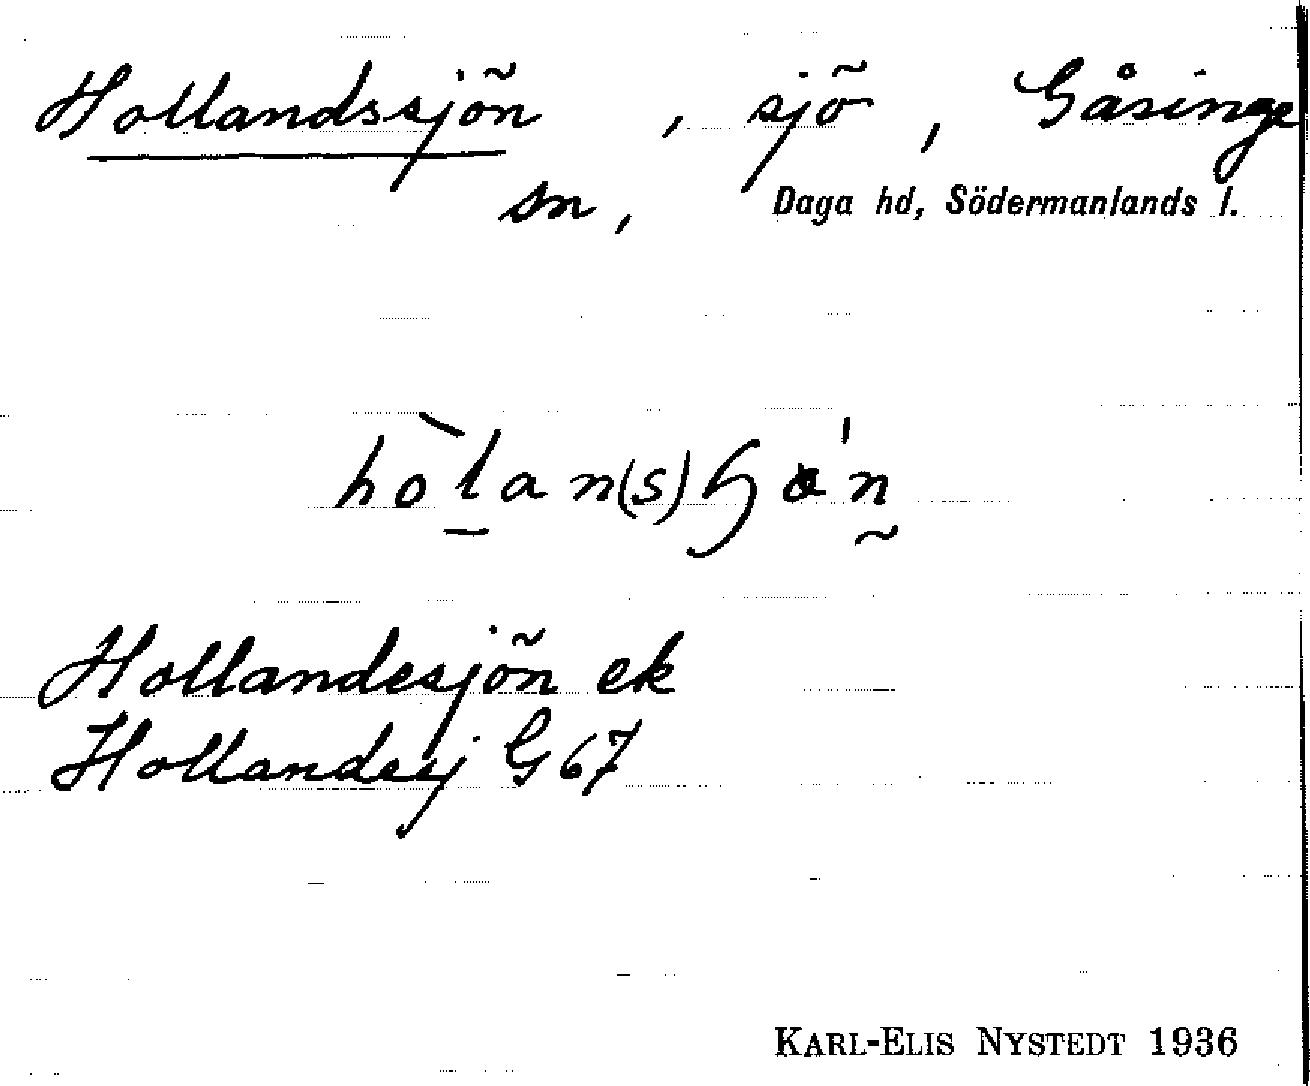 Hollandssjön, sjö, Gåsinge
sn, Daga hd, Södermanlands l.
Hollandesjön ek
Hollandesj G 67
KARL-ELIS NYSTEDT 1936